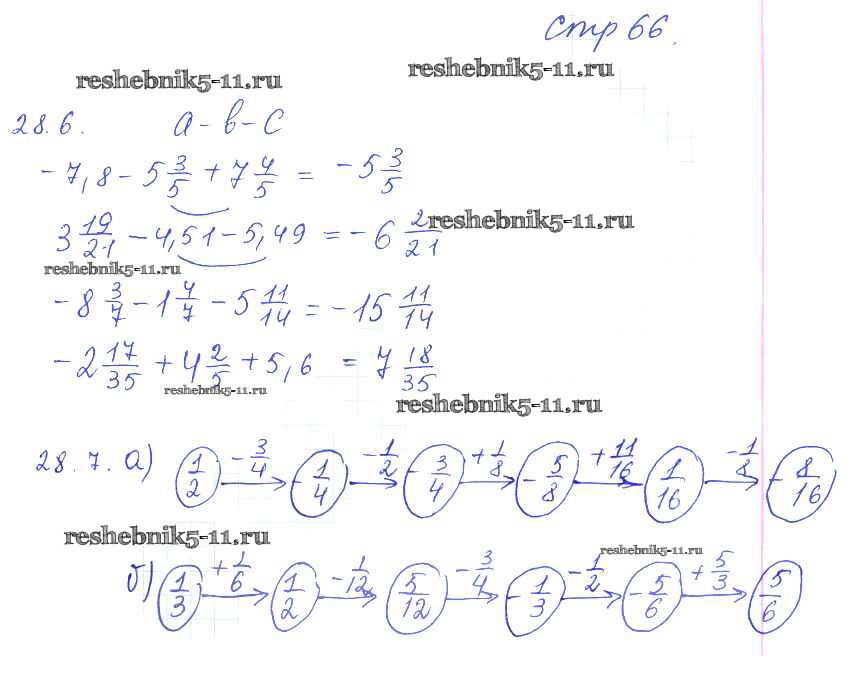 Стр 66.
reshebnik5-11.ru reshebnik5-11.ru
28.6. a-b-c
-7,8 - 5 3/5 + 7 4/5 = -5 3/5
3 19/21 - 4,51 - 5,49 = -6 2/21 reshebnik5-11.ru
reshebnik5-11.ru
-8 3/7 - 1 4/7 - 5 11/14 = -15 11/14
-2 17/35 + 4 2/5 + 5,6 = 7 18/35
reshebnik5-11.ru
reshebnik5-11.ru
28.7. а) 1/2 -3/4 → -1/4 -1/2 → -3/4 +1/8 → -5/8 +11/16 → 1/16 -1/8 → -8/16
reshebnik5-11.ru reshebnik5-11.ru
б) 1/3 +1/6 → 1/2 -1/12 → 5/12 -3/4 → -1/3 -1/2 → -5/6 +5/3 → 5/6